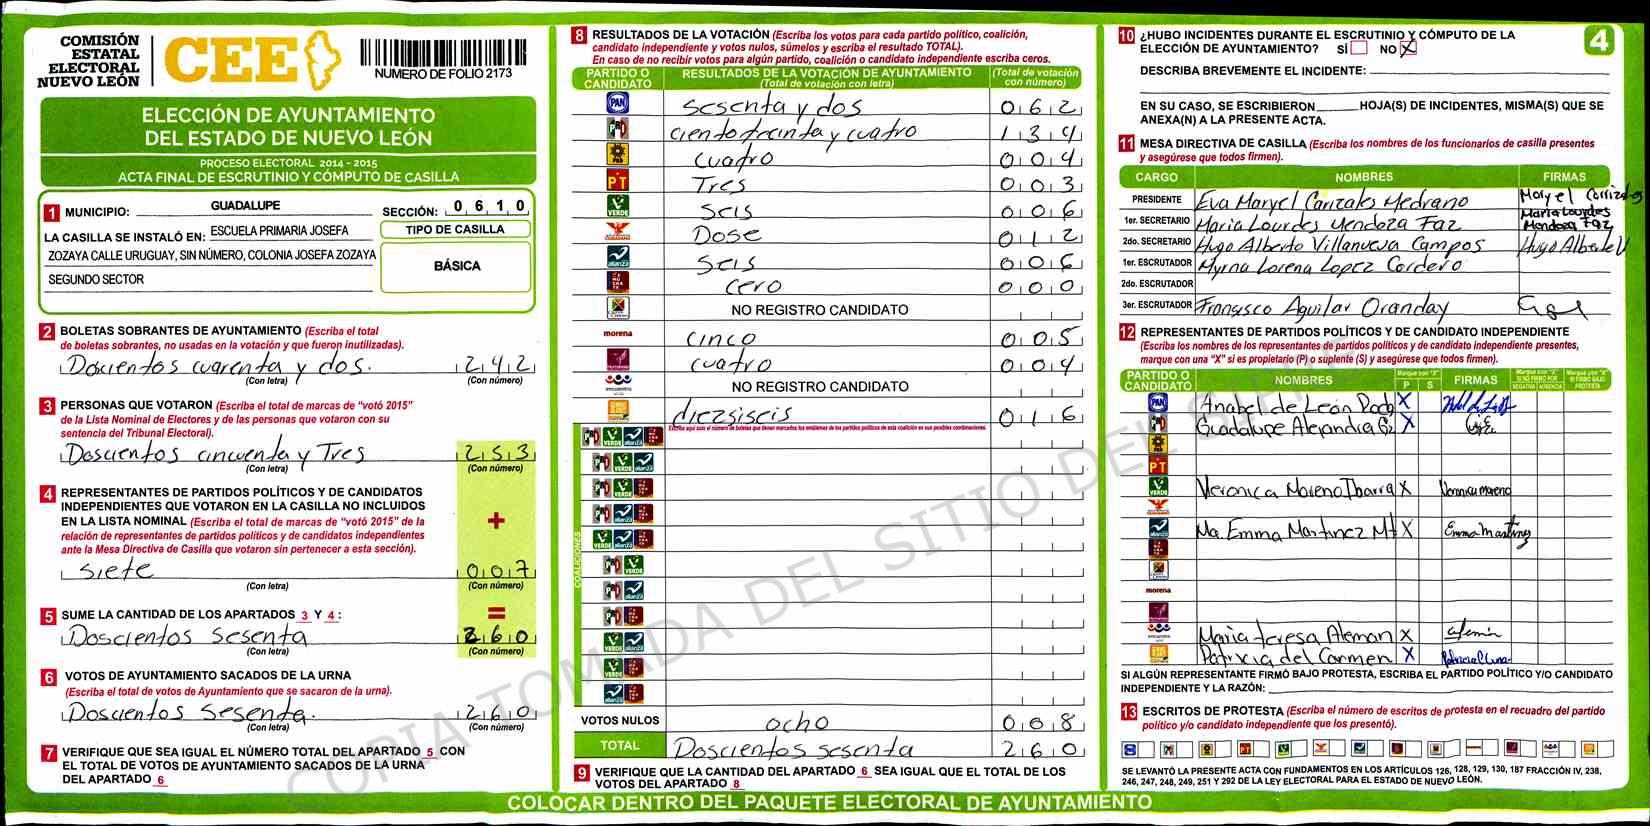 COMISIÓN
ESTATAL
ELECTORAL
NUEVO LEÓN
CEE
NUMERO DE FOLIO 2173
ELECCIÓN DE AYUNTAMIENTO
DEL ESTADO DE NUEVO LEÓN
PROCESO ELECTORAL 2014 - 2015
ACTA FINAL DE ESCRUTINIO Y CÓMPUTO DE CASILLA
1 MUNICIPIO: GUADALUPE SECCIÓN: 0 6 1 0
LA CASILLA SE INSTALÓ EN: ESCUELA PRIMARIA JOSEFA
ZOZAYA CALLE URUGUAY, SIN NÚMERO, COLONIA JOSEFA ZOZAYA
SEGUNDO SECTOR
TIPO DE CASILLA
BÁSICA
2 BOLETAS SOBRANTES DE AYUNTAMIENTO (Escriba el total
de boletas sobrantes, no usadas en la votación y que fueron inutilizadas).
Doscientos cuarenta y dos. 2 4 2
(Con letra) (Con número)
3 PERSONAS QUE VOTARON (Escriba el total de marcas de "votó 2015"
de la Lista Nominal de Electores y de las personas que votaron con su
sentencia del Tribunal Electoral).
Doscientos cincuenta y Tres 2 5 3
(Con letra) (Con número)
4 REPRESENTANTES DE PARTIDOS POLÍTICOS Y DE CANDIDATOS
INDEPENDIENTES QUE VOTARON EN LA CASILLA NO INCLUIDOS
EN LA LISTA NOMINAL (Escriba el total de marcas de "votó 2015" de la
relación de representantes de partidos políticos y de candidatos independientes
ante la Mesa Directiva de Casilla que votaron sin pertenecer a esta sección).
+
Siete 0 0 7
(Con letra) (Con número)
=
5 SUME LA CANTIDAD DE LOS APARTADOS 3 Y 4 :
Doscientos sesenta 2 6 0
(Con letra) (Con número)
6 VOTOS DE AYUNTAMIENTO SACADOS DE LA URNA
(Escriba el total de votos de Ayuntamiento que se sacaron de la urna).
Doscientos Sesenta. 2 6 0
(Con letra) (Con número)
7 VERIFIQUE QUE SEA IGUAL EL NÚMERO TOTAL DEL APARTADO 5 CON
EL TOTAL DE VOTOS DE AYUNTAMIENTO SACADOS DE LA URNA
DEL APARTADO 6
8 RESULTADOS DE LA VOTACIÓN (Escriba los votos para cada partido político, coalición,
candidato independiente y votos nulos, súmelos y escriba el resultado TOTAL).
En caso de no recibir votos para algún partido, coalición o candidato independiente escriba ceros.
PARTIDO O CANDIDATO RESULTADOS DE LA VOTACIÓN DE AYUNTAMIENTO (Total de votación con letra) (Total de votación con número)
PAN sesenta y dos 0 6 2
PRI ciento treinta y cuatro 1 3 4
PRD cuatro 0 0 4
PT Tres 0 0 3
VERDE seis 0 0 6
Dose 0 1 2
alianza seis 0 0 6
cero 0 0 0
NO REGISTRO CANDIDATO
morena cinco 0 0 5
cuatro 0 0 4
encuentro NO REGISTRO CANDIDATO
diezsiseis 0 1 6
Escriba aquí solo el número de boletas que tienen marcados los emblemas de los partidos políticos de esta coalición en sus posibles combinaciones.
COALICIONES
VOTOS NULOS ocho 0 0 8
TOTAL Doscientos sesenta 2 6 0
9 VERIFIQUE QUE LA CANTIDAD DEL APARTADO 6 SEA IGUAL QUE EL TOTAL DE LOS
VOTOS DEL APARTADO 8
10 ¿HUBO INCIDENTES DURANTE EL ESCRUTINIO Y CÓMPUTO DE LA
ELECCIÓN DE AYUNTAMIENTO? SÍ NO X
4
DESCRIBA BREVEMENTE EL INCIDENTE:
EN SU CASO, SE ESCRIBIERON HOJA(S) DE INCIDENTES, MISMA(S) QUE SE
ANEXA(N) A LA PRESENTE ACTA.
11 MESA DIRECTIVA DE CASILLA (Escriba los nombres de los funcionarios de casilla presentes
y asegúrese que todos firmen).
CARGO NOMBRES FIRMAS
PRESIDENTE Eva Maryel Canizales Medrano Maryel
1er. SECRETARIO Maria Lourdes Mendoza Faz Maria Lourdes Mendoza Faz
2do. SECRETARIO Hugo Alberto Villanueva Campos Hugo Alberto V
1er. ESCRUTADOR Myrna Lorena Lopez Cordero
2do. ESCRUTADOR
3er. ESCRUTADOR Francisco Aguilar Oranday
12 REPRESENTANTES DE PARTIDOS POLÍTICOS Y DE CANDIDATO INDEPENDIENTE
(Escriba los nombres de los representantes de partidos políticos y de candidato independiente presentes,
marque con una "X" si es propietario (P) o suplente (S) y asegúrese que todos firmen).
PARTIDO O CANDIDATO NOMBRES Marque con "X" P S FIRMAS Marque con "X" SI NO FIRMÓ POR NEGATIVA AUSENCIA Marque con "X" SI FIRMÓ BAJO PROTESTA
PAN Anabel de León X
PRI Guadalupe Alejandra X
PRD
PT
VERDE Veronica Moreno Ibarra X Veronica Moreno
alianza Ma. Emma Martinez X Emma Martinez
morena
encuentro Maria teresa Aleman X
Patricia del Carmen X
SI ALGÚN REPRESENTANTE FIRMÓ BAJO PROTESTA, ESCRIBA EL PARTIDO POLÍTICO Y/O CANDIDATO
INDEPENDIENTE Y LA RAZÓN:
13 ESCRITOS DE PROTESTA (Escriba el número de escritos de protesta en el recuadro del partido
político y/o candidato independiente que los presentó).
SE LEVANTÓ LA PRESENTE ACTA CON FUNDAMENTOS EN LOS ARTÍCULOS 126, 128, 129, 130, 187 FRACCIÓN IV, 238,
246, 247, 248, 249, 251 Y 292 DE LA LEY ELECTORAL PARA EL ESTADO DE NUEVO LEÓN.
COLOCAR DENTRO DEL PAQUETE ELECTORAL DE AYUNTAMIENTO
COPIA TOMADA DEL SITIO DEL